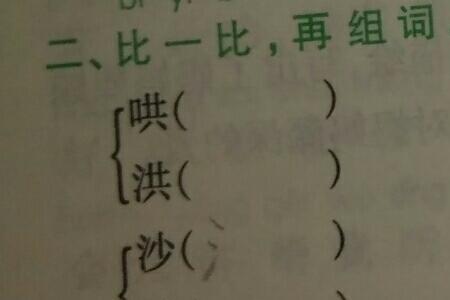 二、比一比,再组词
哄(    )
洪(    )
沙(    )